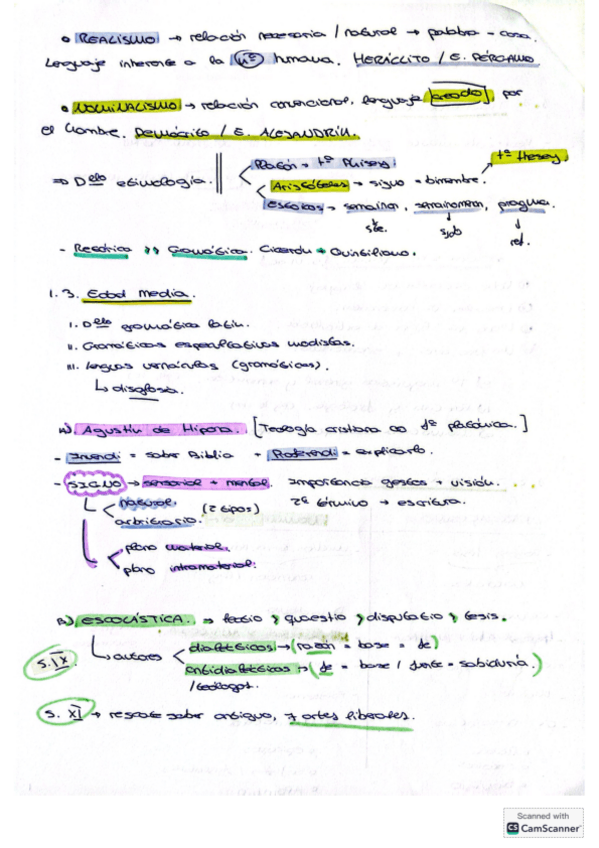 • REALISMO → relación necesaria / natural → palabra - cosa.
Lenguaje inherente a la nª humana. HERÁCLITO / E. PÉRGAMO
• NOMINALISMO → relación convencional, lenguaje creado, por
el hombre. DEMÓCRITO / E. ALEJANDRÍA.
Platón → tª Physei.
tª thesei.
⇒ Dllo etimología.
Aristóteles → signo = bimembre.
estoicos → semainon, semainomenon, pragma.
ste.
sdo
ref.
- Retórica >> Gramática. Cicerón + Quintiliano.
1. 3. Edad media.
I. Dllo gramática latín.
II. Gramáticas especulativas modistas.
III. lenguas vernáculas (gramáticas).
↳ diglosia.
A). Agustín de Hipona. [Teología cristiana con fª platónica.]
- Invendi = saber Biblia + Proferendi = explicarlo.
- SIGNO → sensorial + mental. Importancia gestos + visión.
natural.
(2 tipos)
2º término → escritura.
arbitrario.
plano material.
plano inmaterial.
B). ESCOLÁSTICA. ⇒ lectio y quaestio y disputatio y tesis.
S. IX.
↳ autores
dialécticos → (razón = base = fe)
antidialécticos → (fe = base / fuente = sabiduría.)
/ teólogos.
S. XI → rescate saber antiguo, 7 artes liberales.
Scanned with
CS CamScanner